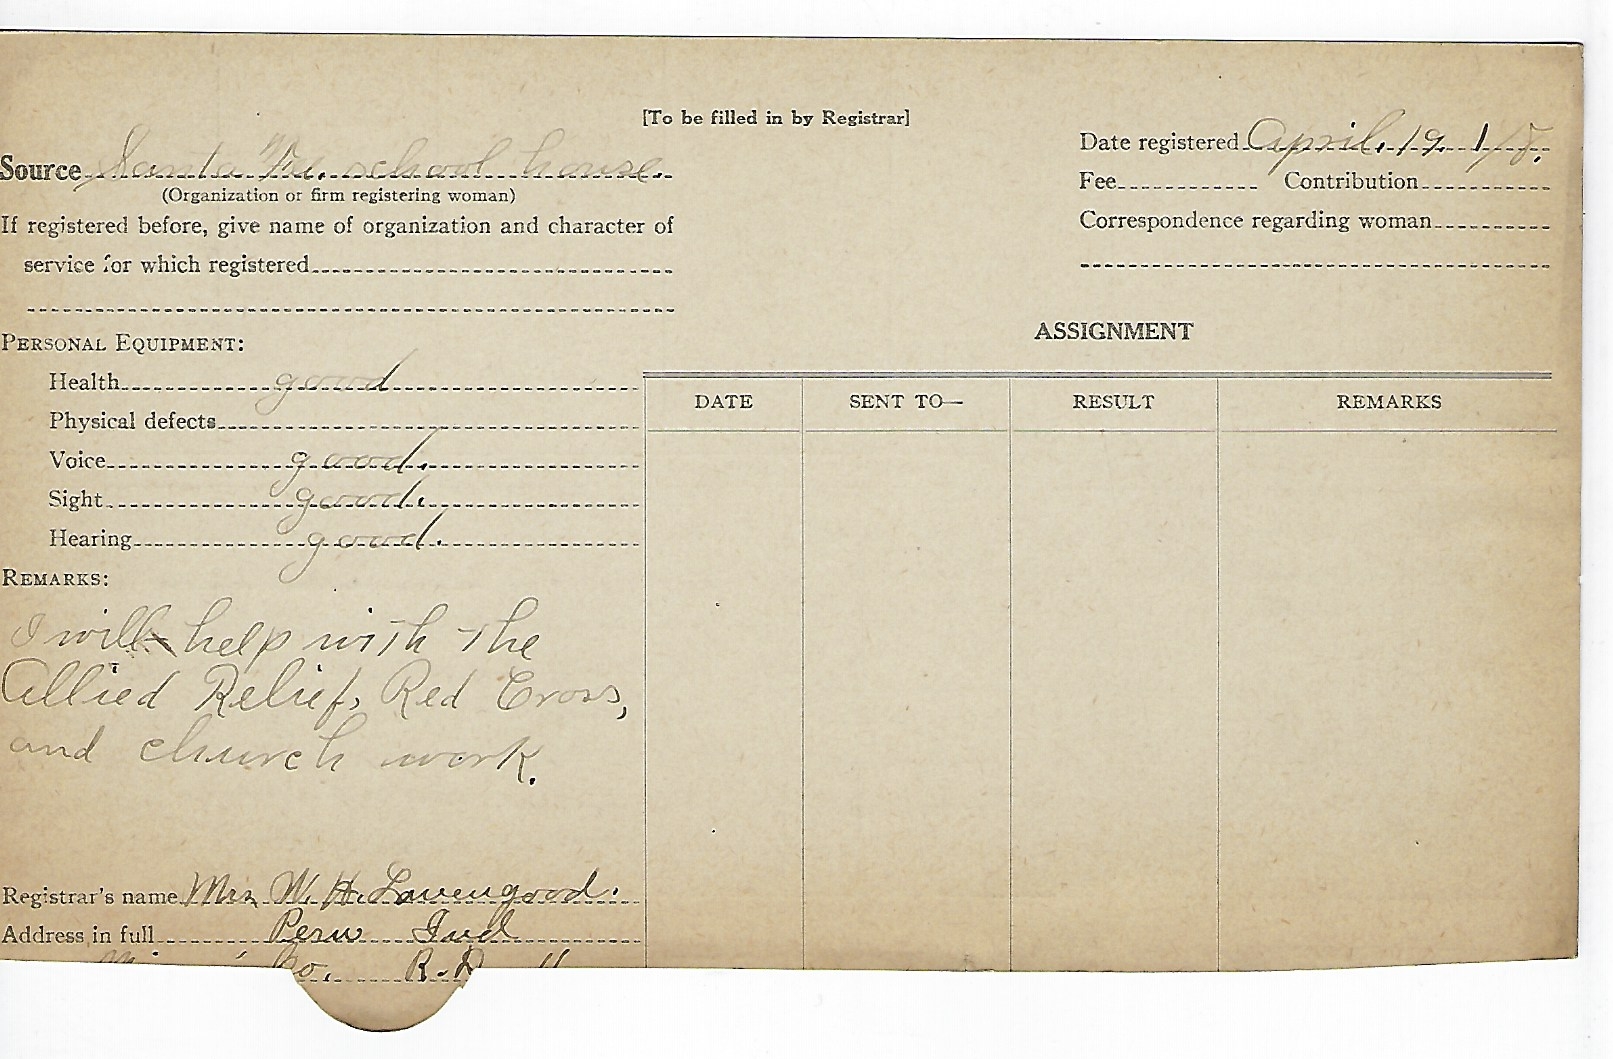 [To be filled in by Registrar]
Date registered April. 19. 1/8.
Source Santa Fe. school house.
(Organization or firm registering woman)
Fee Contribution
If registered before, give name of organization and character of
Correspondence regarding woman
service for which registered
ASSIGNMENT
PERSONAL EQUIPMENT:
Health good
DATE SENT TO— RESULT REMARKS
Physical defects
Voice good.
Sight good.
Hearing good.
REMARKS:
I will help with the
Allied Relief, Red Cross,
and church work.
Registrar's name Mrs W. H. Lavengood.
Address in full Peru Ind
Co. R.R.